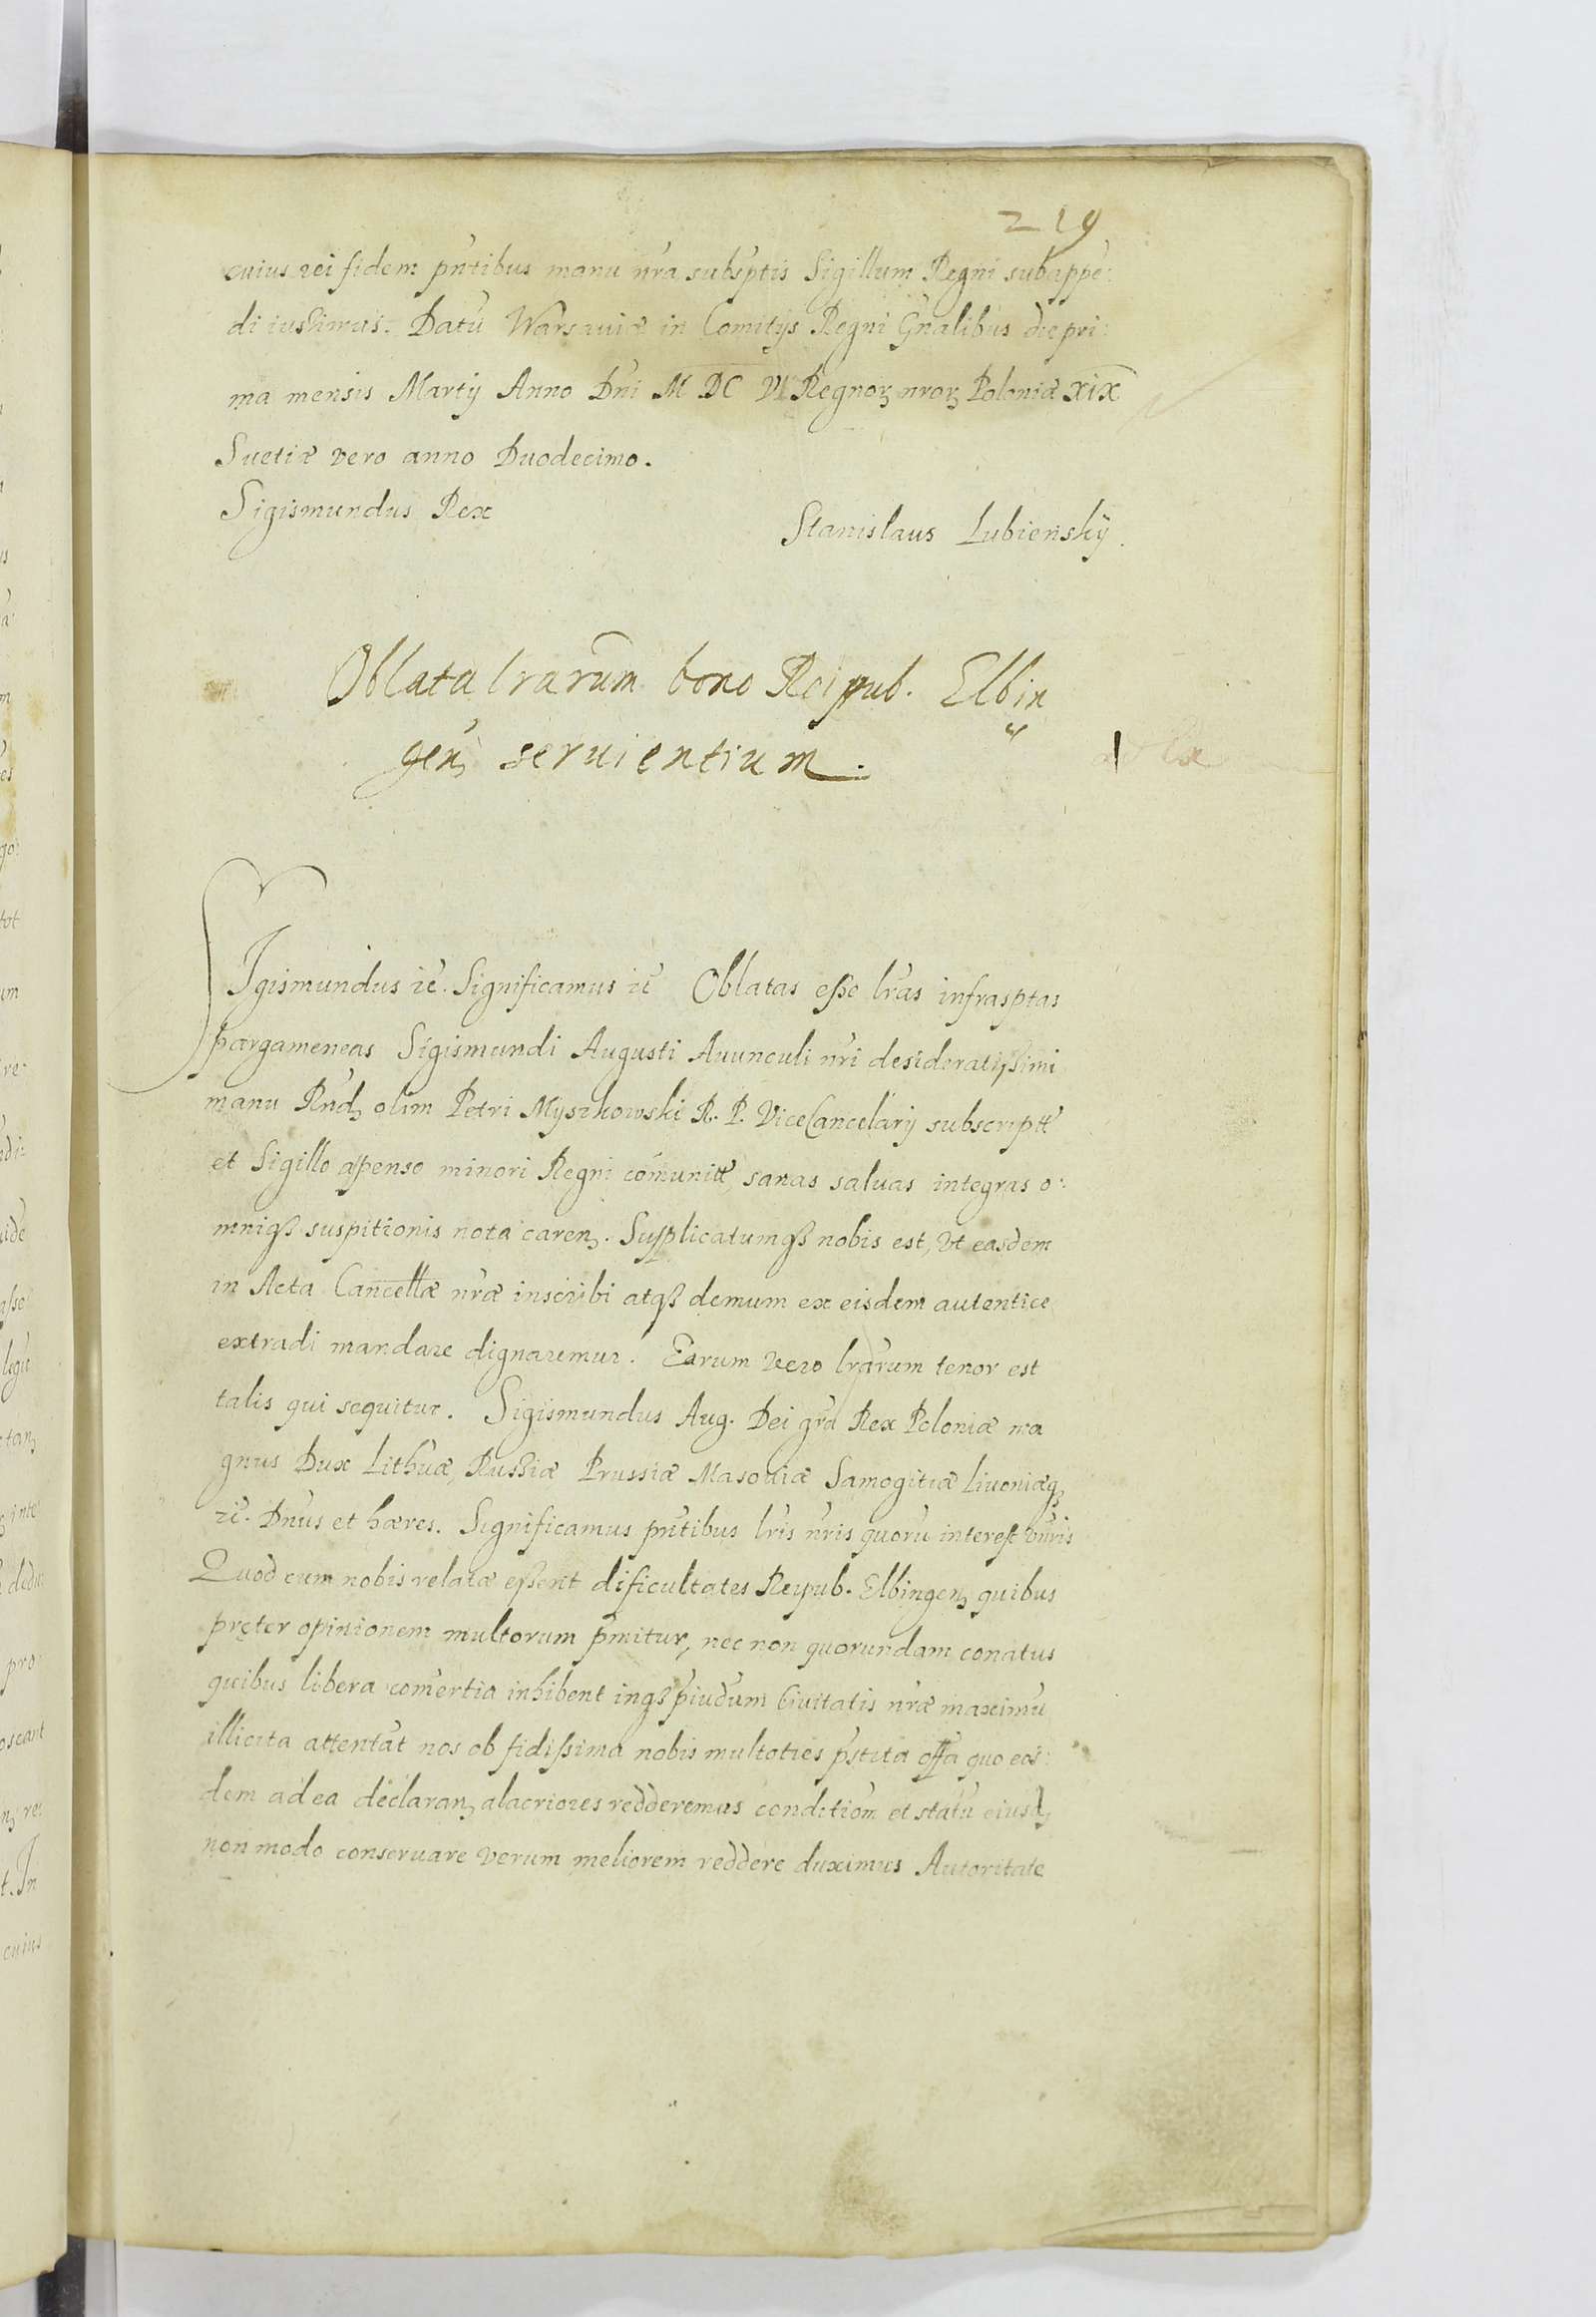 219
cuius rei fidem pñtibus manu nr̃a subsptis Sigillum Regni subappẽ:
di iussimus. Datũ Warsauiæ in Comitijs Regni Gñalibus die pri:
ma mensis Martij Anno Dñi M DC VI Regnoꝝ nroꝝ Poloniæ XIX
Suetiæ vero anno Duodecimo.
Sigismundus Rex
Stanislaus Lubiensky.
Oblata lrarum bono Reipub. Elbin
gen̄ seruientium.
SIgismundus ec̃. Significamus ec̃ Oblatas esse lr̃as infrasptas
pargameneas Sigismundi Augusti Auunculi nr̃i desideratissimi
manu Rnd̃ olim Petri Myszkowski R. P. ViceCancelarij subscriptt̃
et Sigillo apenso minori Regni cõmunitt̃, sanas saluas integras o:
mniqꝫ suspitionis nota careñ. Supplicatumqꝫ nobis est, vt easdem
in Acta Cancellæ nr̃æ inscribi atqꝫ demum ex eisdem autentice
extradi mandare dignaremur. Earum vero lrarum tenor est
talis qui sequitur. Sigismundus Aug. Dei gr̃a Rex Poloniæ ma
gnus Dux Lithuæ, Russiæ Prussiæ Masouiæ Samogitiæ Liuoniæqꝫ
ec̃. Dñus et hæres. Significamus pñtibus lr̃is nr̃is quorũ interest vñris
Quod cum nobis relatæ essent dificultates Reipub. Elbingeñ quibus
pręter opinionem multorum p̃mitur, nec non quorundam conatus
quibus libera com̃ertia inhibent inqꝫ p̃iudũm Ciuitatis nr̃æ maximũ
illicita attentãt nos ob fidissima nobis multoties p̃stita off̃a quo eos:
dem ad ea declarañ alacriores redderemus conditiom̃ et statũ eiusd̃
non modo conseruare verum meliorem reddere duximus Autoritate